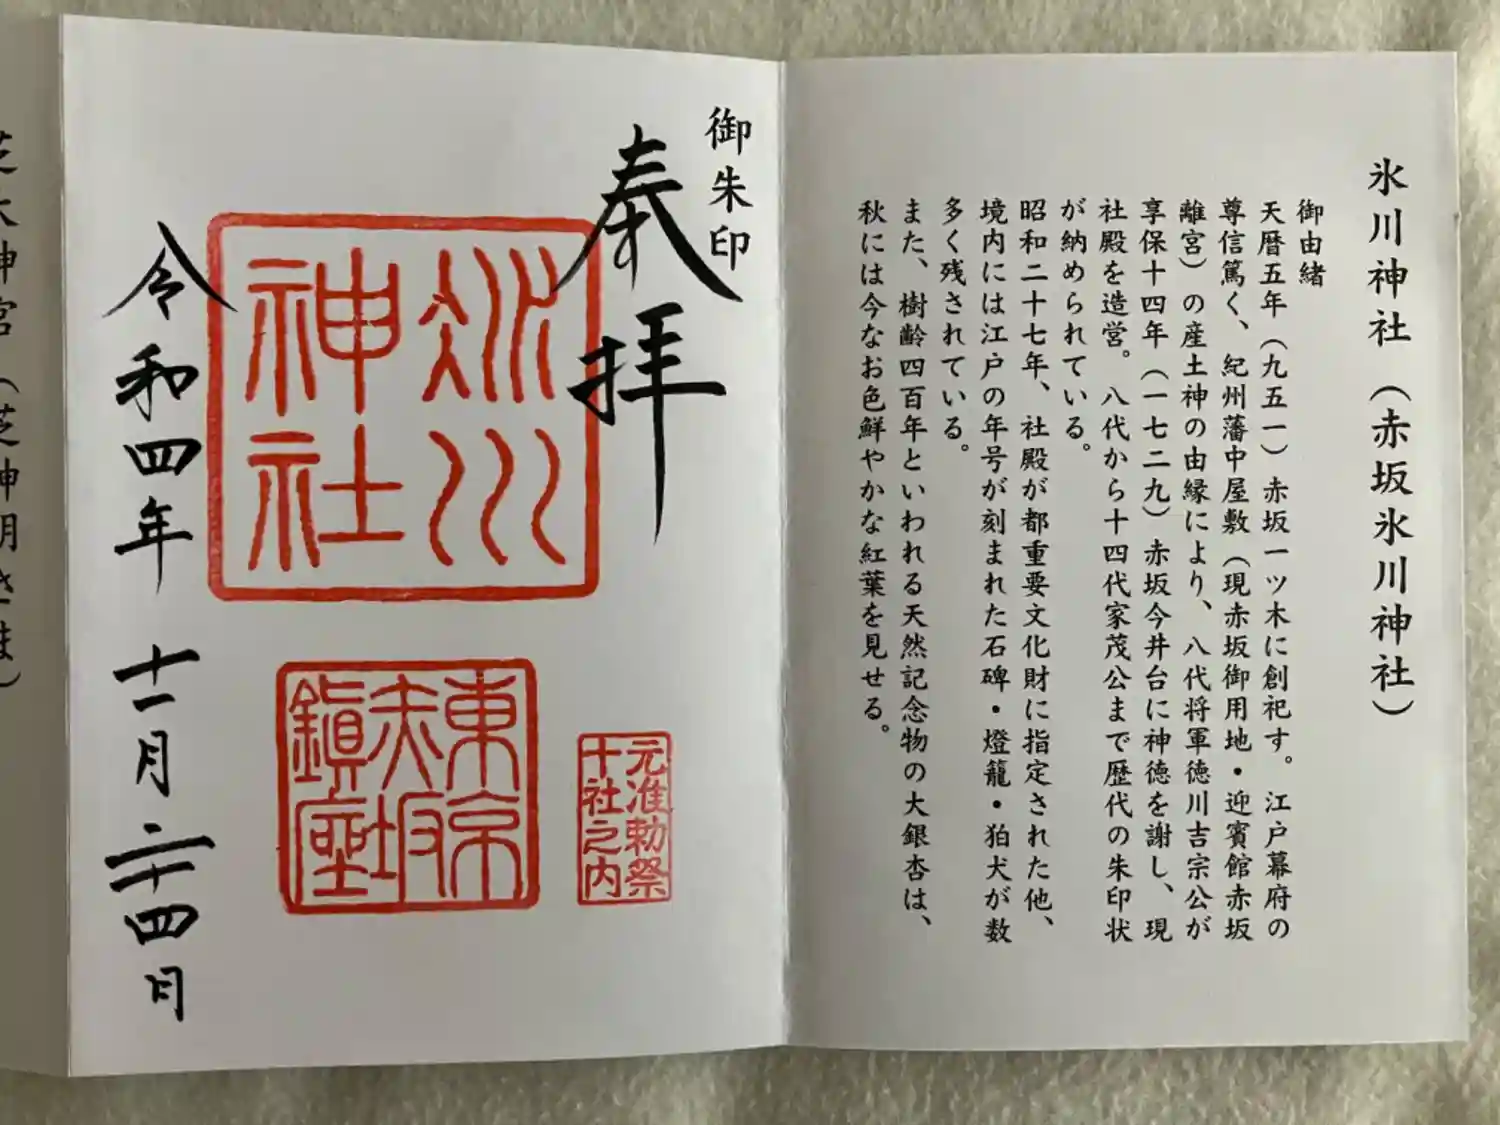 氷川神社（赤坂氷川神社）
御由緒
天暦五年（九五一）赤坂一ツ木に創祀す。江戸幕府の
尊信篤く、紀州藩中屋敷（現赤坂御用地・迎賓館赤坂
離宮）の産土神の由縁により、八代将軍徳川吉宗公が
享保十四年（一七二九）赤坂今井台に神徳を謝し、現
社殿を造営。八代から十四代家茂公まで歴代の朱印状
が納められている。
昭和二十七年、社殿が都重要文化財に指定された他、
境内には江戸の年号が刻まれた石碑・燈籠・狛犬が数
多く残されている。
また、樹齢四百年といわれる天然記念物の大銀杏は、
秋には今なお色鮮やかな紅葉を見せる。
御朱印
奉拝
氷川
神社
元准勅祭
十社之内
東京
赤坂
鎮座
令和四年十一月二十四日
芝大神宮（芝神明さま）